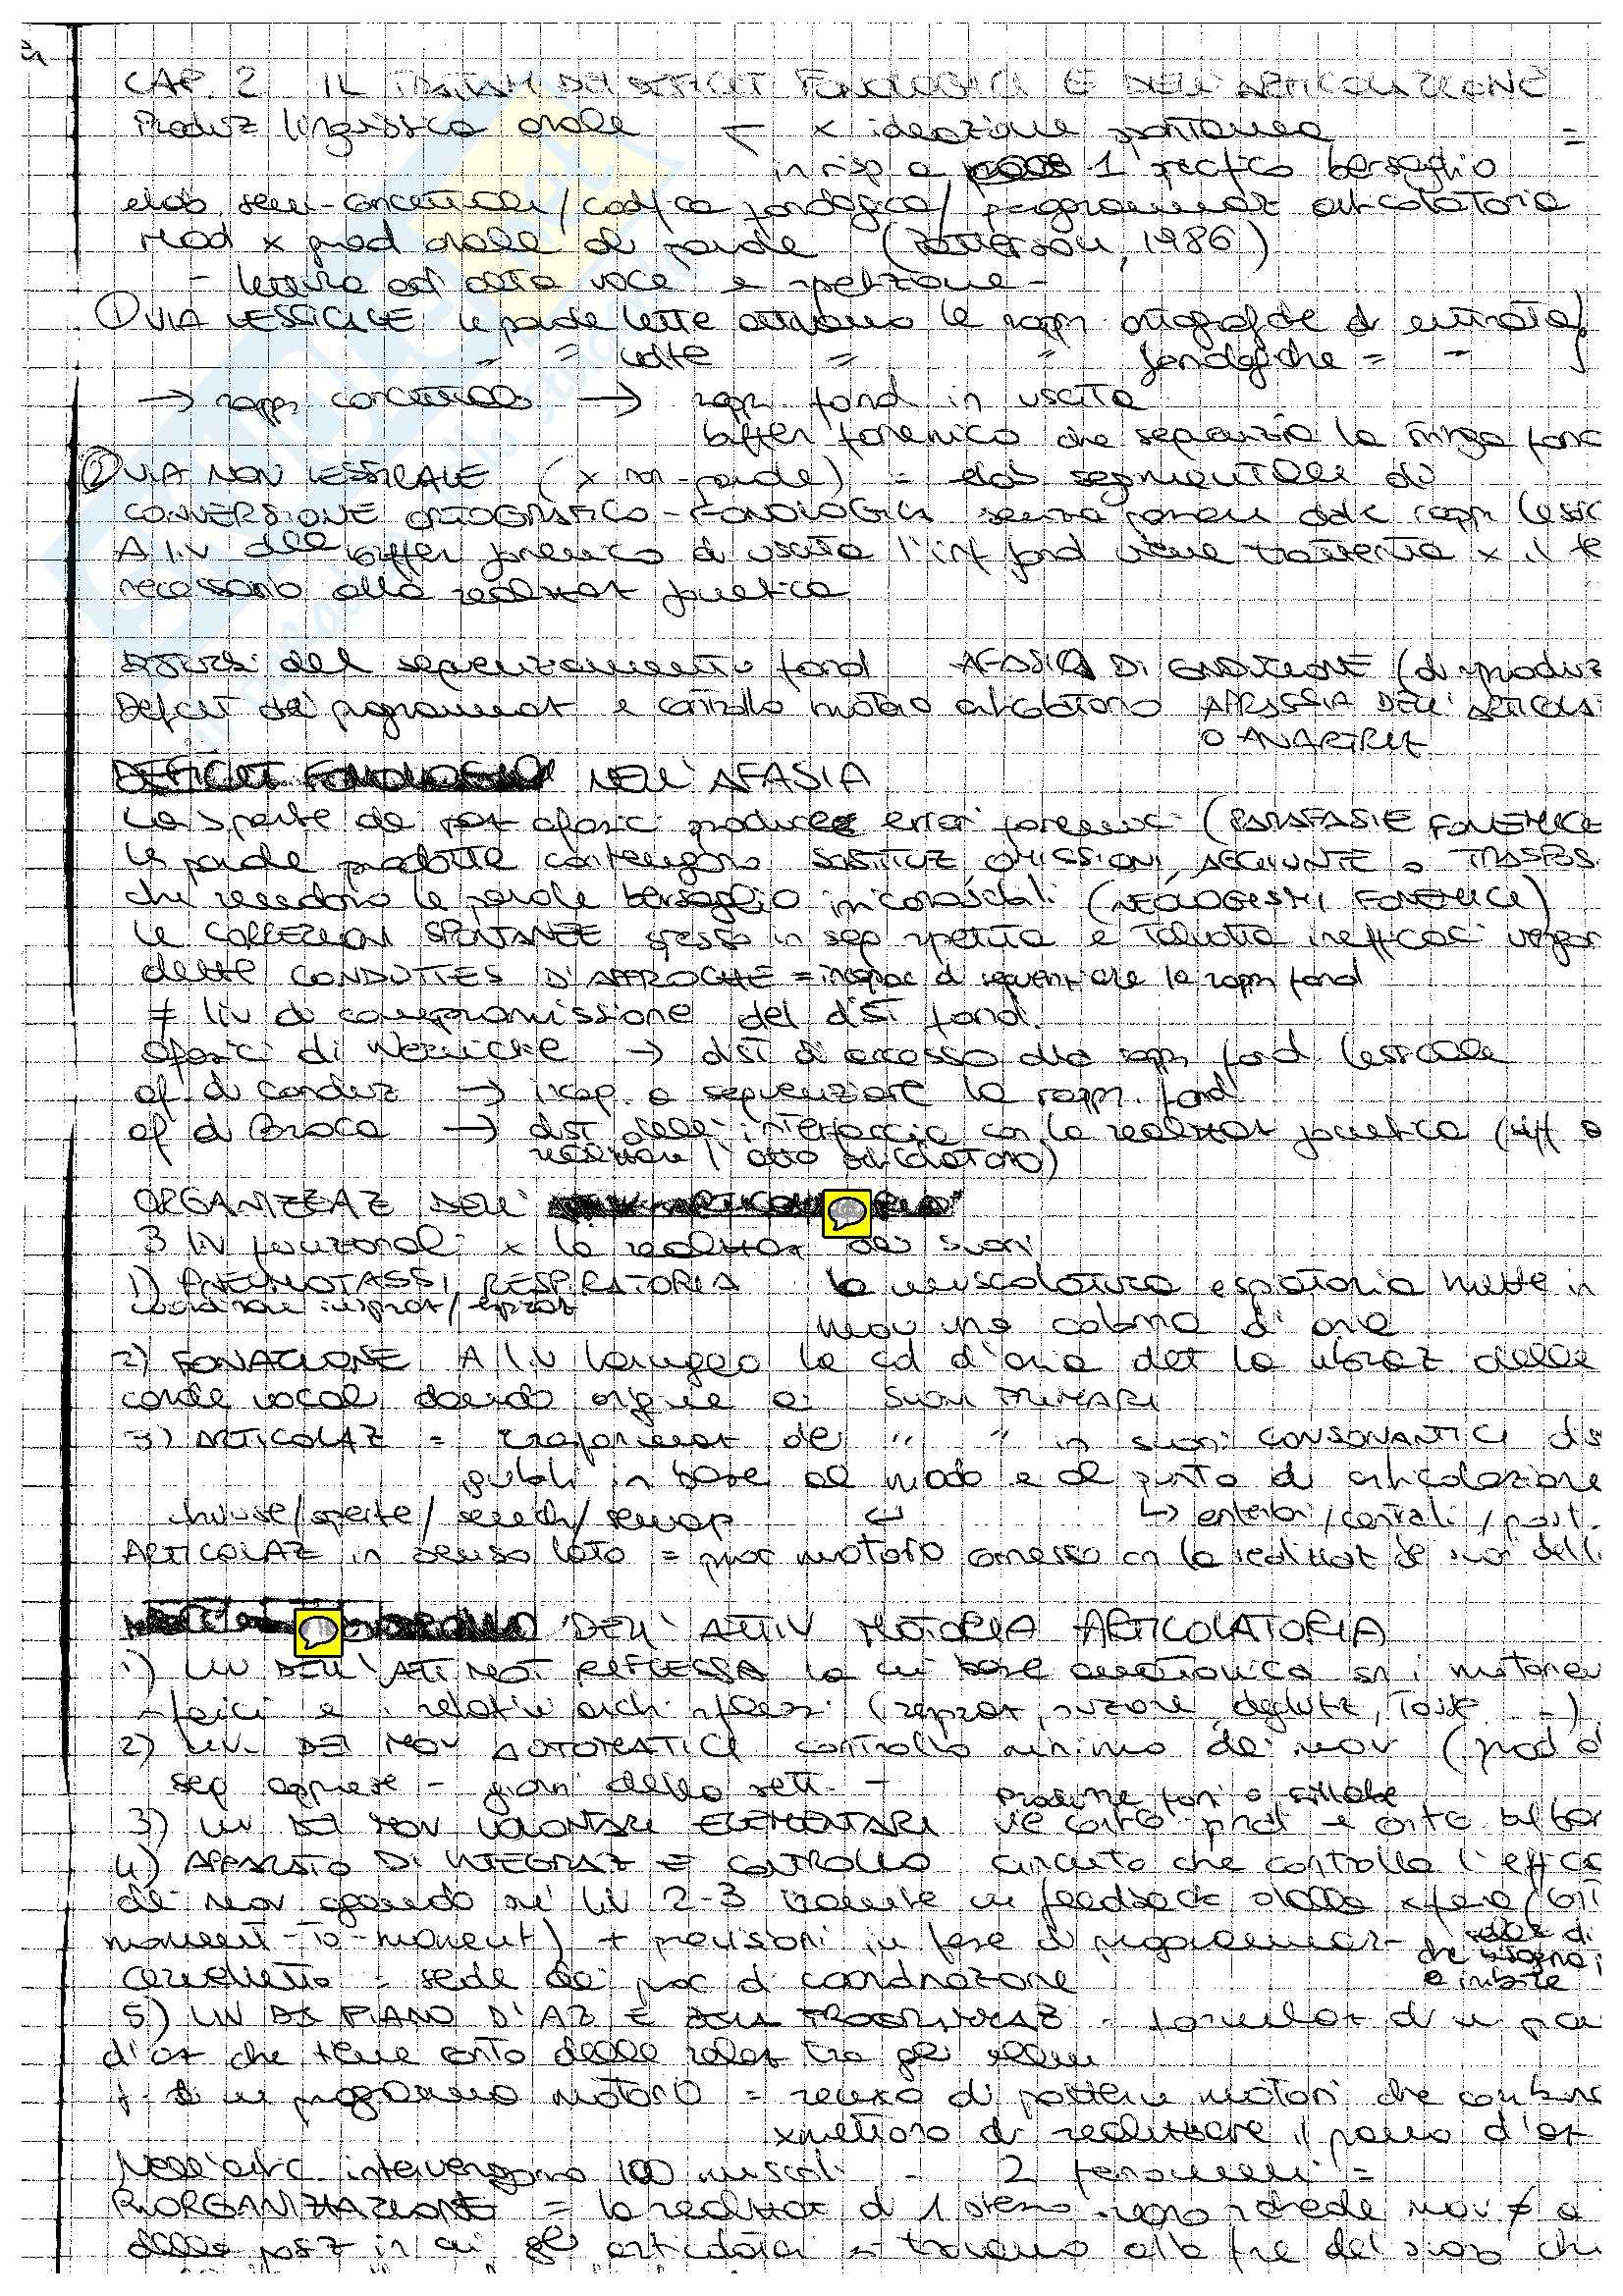 CAP. 2 IL TRATTAM DEI DEFICIT FONOLOGICI E DELL'ARTICOLAZIONE
Produz linguistica orale ← x ideazione spontanea =
in risp a 1 specifico bersaglio
elab. sem-concettuale / codifica fonologica / programmaz articolatoria
Mod x prod orale di parole (Patterson, 1986)
- lettura ad alta voce e ripetizione -
① VIA LESSICALE le parole lette attivano le rappr ortografiche di entrata
" = udite = " fonologiche = "
→ rappr concettuale → rappr fonol in uscita
buffer fonemico che sequenzia la stringa fono
② VIA NON LESSICALE (x non-parole) = elab segmentale di
CONVERSIONE ORTOGRAFICO-FONOLOGICA senza passare dalle rappr lessic
A liv del buffer fonemico di uscita l'inf fonol viene trattenuta x il te
necessario alla realizzaz fonetica
Disturbi del sequenziamento fonol AFASIA DI CONDUZIONE (di riproduz
Deficit del programmaz e controllo motorio articolatorio APRASSIA DELL'ARTICOLA
O ANARTRIA
DEFICIT FONOLOGICI NELL'AFASIA
La > parte dei paz afasici produce errori fonemici (PARAFASIE FONEMICHE
Le parole prodotte contengono SOSTITUZ OMISSIONI, AGGIUNTE o TRASPOS
che rendono le parole bersaglio inconoscibili (NEOLOGISMI FONEMICI)
Le CORREZIONI SPONTANEE spesso in seq ripetuta e talvolta inefficaci vengon
dette CONDUITES D'APPROCHE = incapac di sequenziare la rappr fonol
≠ liv di compromissione del dist fonol.
afasici di Wernicke → dist di accesso alla rappr fonol lessicale
af. di conduz → incap. a sequenziare la rappr. fonol
af di Broca → dist. dell'interfaccia con la realizzaz fonetica (diff a
realizzare l'atto articolatorio)
ORGANIZZAZ DELL'
3 liv funzionali x la realizzaz dei suoni
1) PNEUMOTASSI, RESPIRATORIA la muscolatura espiratoria mette in
coordinaz inspiraz/espiraz
mov una colonna d'aria
2) FONAZIONE A liv laringeo la col d'aria det la vibraz delle
corde vocali dando origine ai SUONI PRIMARI
3) ARTICOLAZ = trasformaz dei " " in suoni CONSONANTICI dis
guibili in base al modo e al punto di articolazione
chiuse/aperte/semich/semiap ↵ ↳ anteriori/centrali/post.
ARTICOLAZ in senso lato = proc motorio connesso con la realizzaz dei suoni dell
DELL'ATTIV MOTORIA ARTICOLATORIA
1) LIV DELL'ATT MOT RIFLESSA la cui base anatomica sn i motoneu
sferici e i relativi archi riflessi (respiraz, suzione, deglutiz, tosse ...)
2) LIV. DEI MOV AUTOMATICI controllo minimo dei mov (prod d
seq apprese - giorni della sett. -
produrre foni o sillabe
3) LIV DEI MOV VOLONTARI ELEMENTARI vie cortico prot e cortico bulbar
4) APPARATO DI INTEGRAZ E CONTROLLO circuito che controlla l'effica
dei mov agendo sui liv 2-3 tramite un feedback
moment-to-moment) + previsioni in fase di programmaz
che bisogna
e inibire
cervelletto = sede dei proc di coordinazione
5) LIV DI PIANO D'AZ E DELLA PROGRAMMAZ = formulaz di un pia
d'az che tiene conto delle relaz tra gli elem
+ di un programma motorio = recupero di patterns motori che combina
xmettono di realizzare il piano d'az
Nell'artic intervengono 100 muscoli - 2 fenomeni =
RIORGANIZZAZIONE = la realizzaz di 1 stesso suono richiede mov ≠ a
della posiz in cui gli articolatori si trovano alla fine del suono che